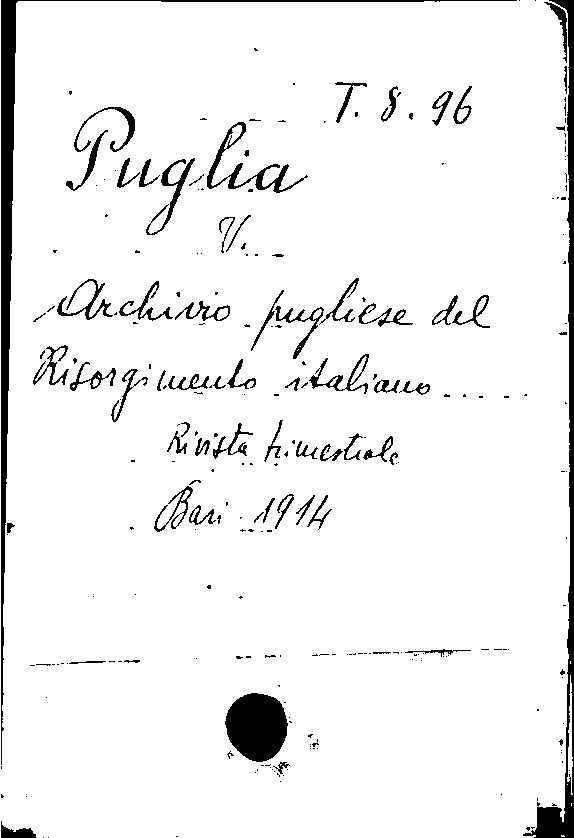 T. 8. 96
Puglia
V.
Archivio pugliese del
Risorgimento italiano
Rivista trimestrale
Bari 1914